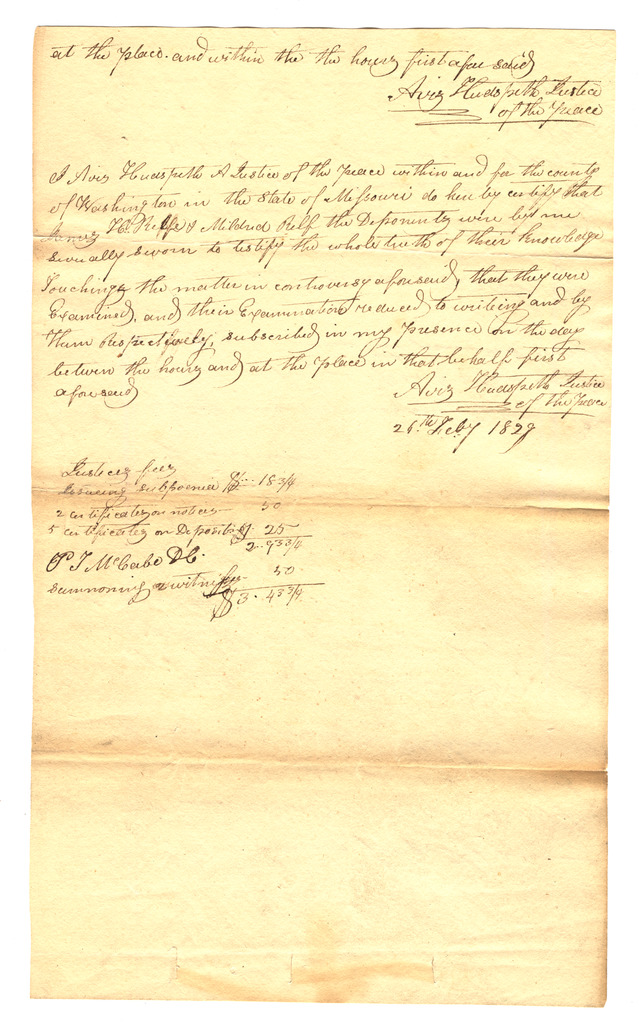 at the place. and within the the hours first afore said
Aviz Hudspeth Justice
of the Peace
I Aviz Hudspeth A Justice of the peace within and for the county
of Washington in the State of Missouri do here by certify that
James H. Relfe & Mildred Relf the Deponents were by me
severally sworn to testify the whole truth of their knowledge
Touching the matter in controversy aforesaid, that they were
Examined, and their Examination reduced to writing and by
them Respectively, subscribed in my presence on the day
betwen the hours and at the place in that behalf first
aforesaid
Aviz Hudspeth Justice
of the Peace
26th Feby 1829
Justices fees
Issuing subpoena $ 18 3/4
2 certificates on notices 50
5 certificates on Depositions 25
2. 93 3/4
P T McCabe D.C.
summoning 2 witnesses 50
$3. 43 3/4